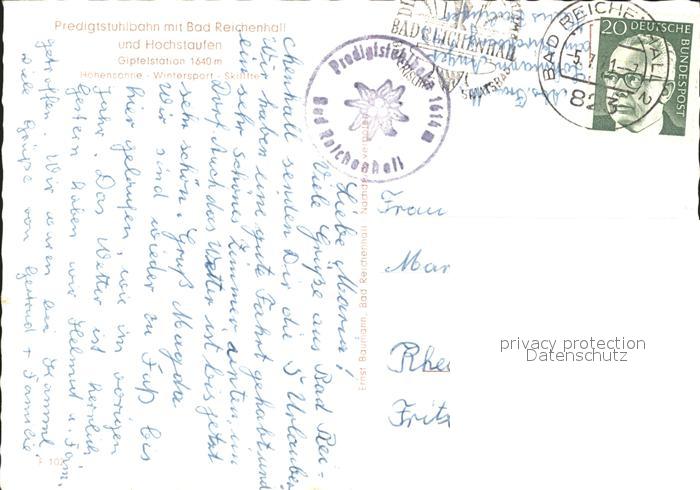 Predigtstuhlbahn mit Bad Reichenhall
und Hochstaufen
Gipfelstation 1640 m
Höhensonne - Wintersport - Skilifte
BAD REICHENHALL
STAATSBAD
BAD REICHENHALL
20 DEUTSCHE
BUNDESPOST
Predigtstuhl 1614 m
Bad Reichenhall
Liebe Mama!
Viele Grüße aus Bad Rei-
chenhall senten Dir die 5 Urlauber
Wir haben eine gute Fahrt gehabt und
ein sehr schönes Zimmer, unten, im
Dorf. Auch das Wetter ist bis jetzt
sehr schön. Gruß Magda
Wir sind wieder zu Fuß bis
hier gelaufen, wie im vorigen
Jahr. Das Wetter ist herrlich
Gestern haben wir Helmut u. Fam.
getroffen. Wir waren bei
Viele Grüße von Gertrud + Familie
Ernst Baumann, Bad Reichenhall
Frau
Mar
Rhe
Fritz
privacy protection
Datenschutz